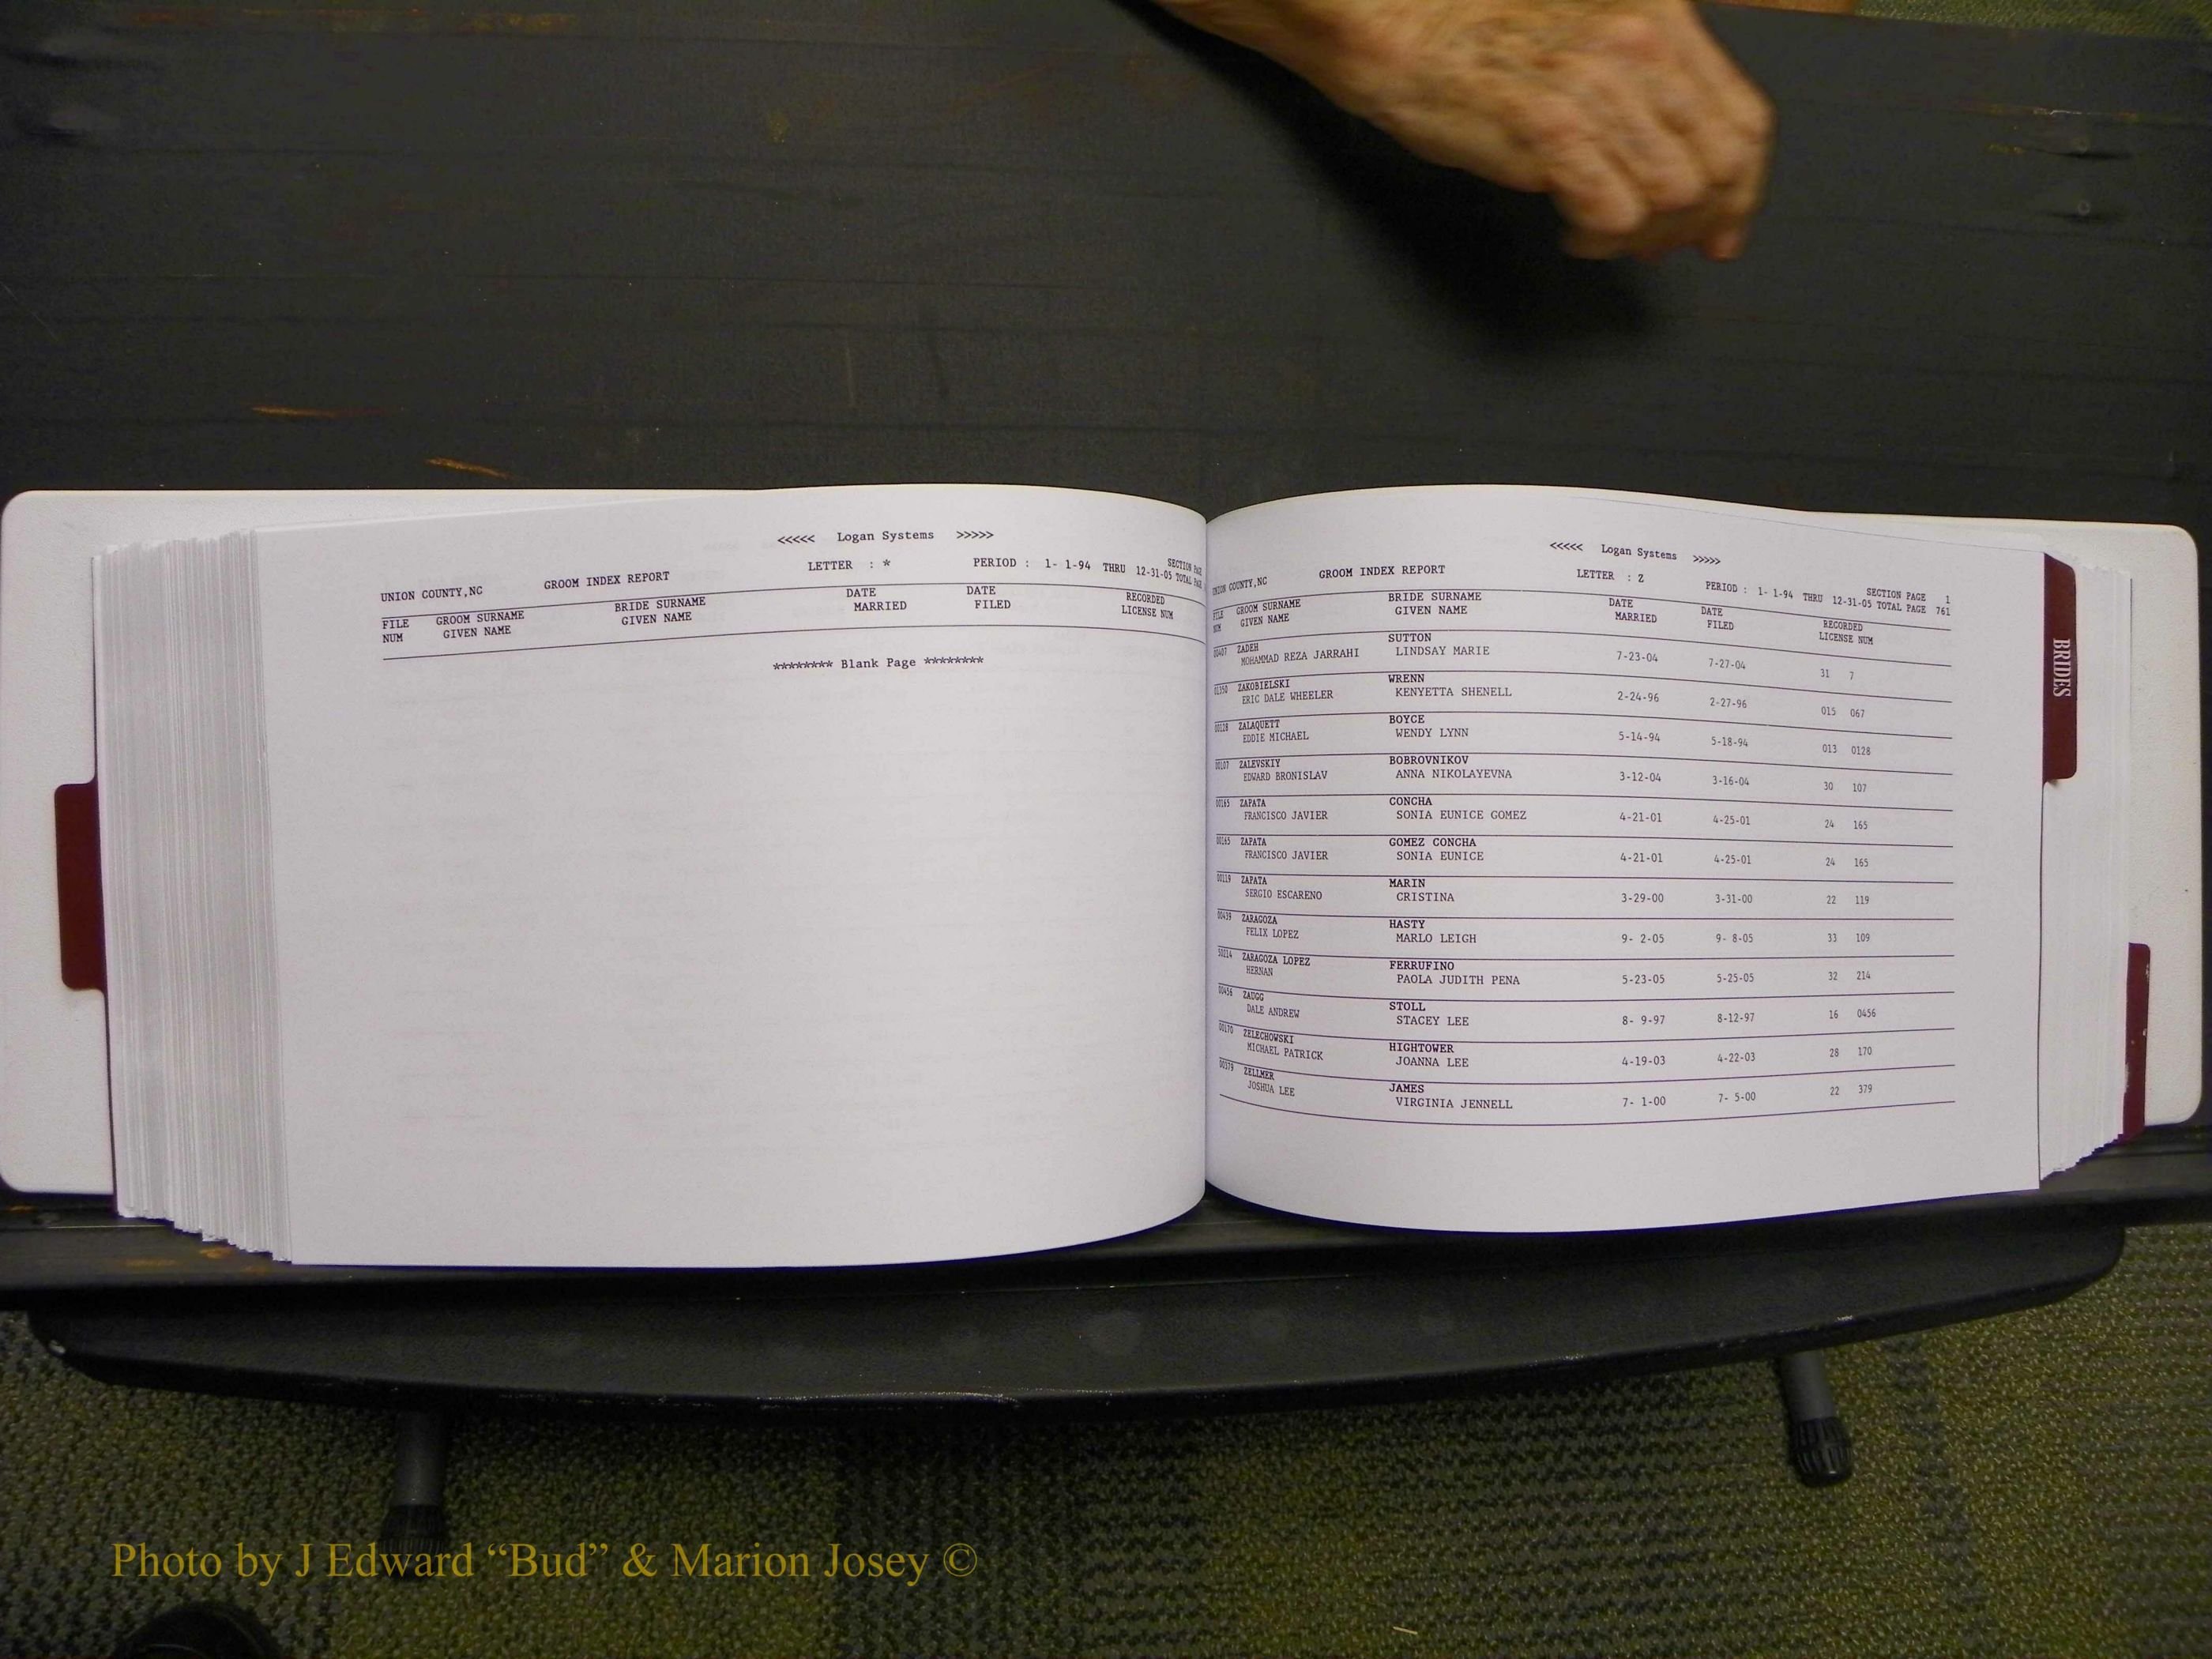 <<<<< Logan Systems >>>>>
UNION COUNTY,NC GROOM INDEX REPORT LETTER : * PERIOD : 1- 1-94 THRU 12-31-05 TOTAL PAGE
SECTION PAGE
FILE GROOM SURNAME BRIDE SURNAME DATE DATE RECORDED
NUM GIVEN NAME GIVEN NAME MARRIED FILED LICENSE NUM
******** Blank Page ********
<<<<< Logan Systems >>>>>
SECTION PAGE 1
UNION COUNTY,NC GROOM INDEX REPORT LETTER : Z PERIOD : 1- 1-94 THRU 12-31-05 TOTAL PAGE 761
FILE GROOM SURNAME BRIDE SURNAME DATE DATE RECORDED
NUM GIVEN NAME GIVEN NAME MARRIED FILED LICENSE NUM
00407 ZADEH SUTTON
MOHAMMAD REZA JARRAHI LINDSAY MARIE 7-23-04 7-27-04 31 7
01350 ZAKOBIELSKI WRENN
ERIC DALE WHEELER KENYETTA SHENELL 2-24-96 2-27-96 015 067
00128 ZALAQUETT BOYCE
EDDIE MICHAEL WENDY LYNN 5-14-94 5-18-94 013 0128
00107 ZALEVSKIY BOBROVNIKOV
EDWARD BRONISLAV ANNA NIKOLAYEVNA 3-12-04 3-16-04 30 107
00165 ZAPATA CONCHA
FRANCISCO JAVIER SONIA EUNICE GOMEZ 4-21-01 4-25-01 24 165
00165 ZAPATA GOMEZ CONCHA
FRANCISCO JAVIER SONIA EUNICE 4-21-01 4-25-01 24 165
00119 ZAPATA MARIN
SERGIO ESCARENO CRISTINA 3-29-00 3-31-00 22 119
00439 ZARAGOZA HASTY
FELIX LOPEZ MARLO LEIGH 9- 2-05 9- 8-05 33 109
50214 ZARAGOZA LOPEZ FERRUFINO
HERNAN PAOLA JUDITH PENA 5-23-05 5-25-05 32 214
00456 ZAUGG STOLL
DALE ANDREW STACEY LEE 8- 9-97 8-12-97 16 0456
00170 ZELECHOWSKI HIGHTOWER
MICHAEL PATRICK JOANNA LEE 4-19-03 4-22-03 28 170
00379 ZELLMER JAMES
JOSHUA LEE VIRGINIA JENNELL 7- 1-00 7- 5-00 22 379
BRIDES
Photo by J Edward “Bud” & Marion Josey ©